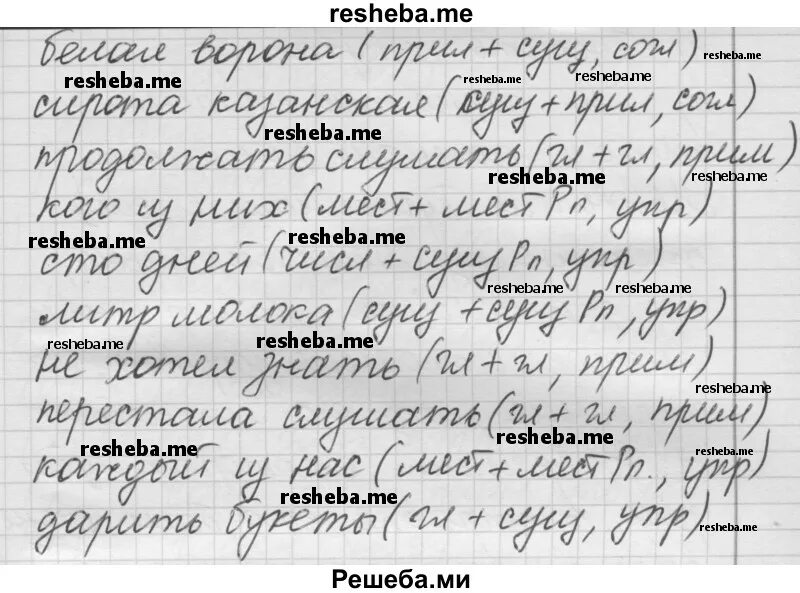 resheba.me
белая ворона (прил + сущ, согл) resheba.me
resheba.me resheba.me resheba.me
сирота казанская (сущ + прил, согл)
resheba.me
продолжать слушать (гл + гл, прим)
resheba.me resheba.me
кого из них (мест + мест Рп, упр)
resheba.me resheba.me
сто дней (числ + сущ Рп, упр)
resheba.me resheba.me
литр молока (сущ + сущ Рп, упр)
resheba.me resheba.me
не хотел знать (гл + гл, прим)
resheba.me
перестала слушать (гл + гл, прим)
resheba.me resheba.me resheba.me
каждый из нас (мест + мест Рп., упр)
resheba.me
дарить букеты (гл + сущ, упр) resheba.me
Решеба.ми